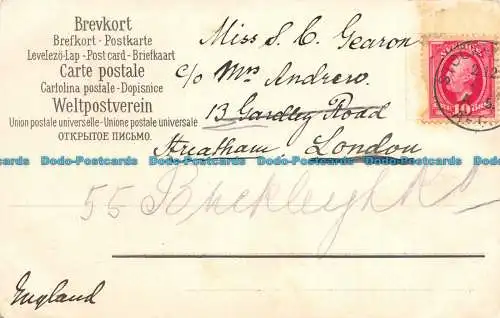 Brevkort
Brefkort - Postkarte
Levelező-Lap - Post card - Briefkaart
Carte postale
Cartolina postale - Dopisnice
Weltpostverein
Union postale universelle - Unione postale universale
ОТКРЫТОЕ ПИСЬМО.
Miss S. C. Gearon
c/o Mrs Andrew.
13 Gardley Road
Streatham London
55 Buckleigh Rd
England
10
Dodo-Postcards Dodo-Postcards Dodo-Postcards Dodo-Postcards Dodo-Postcards